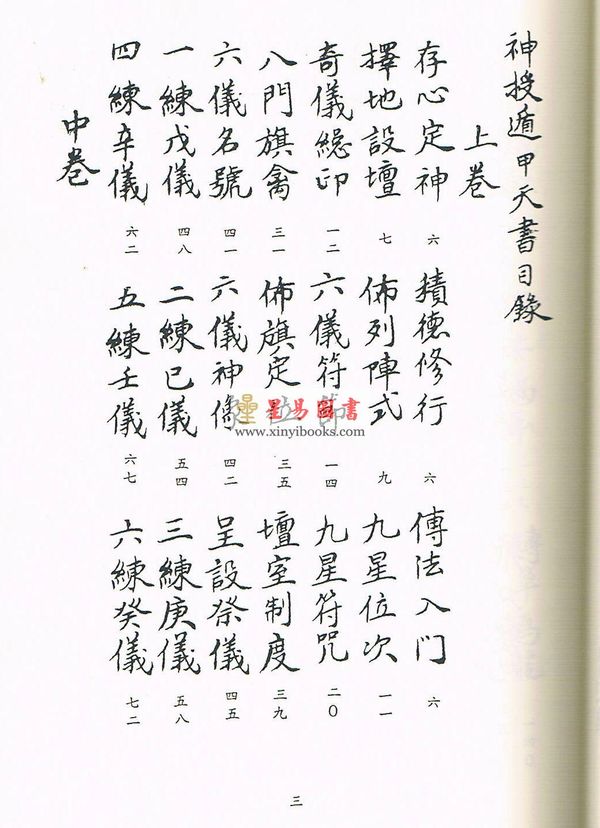 神授遁甲天書目錄
上卷
存心定神 六 積德修行 六 傅法入门 六
擇地設壇 七 佈列陣式 九 九星位次 一一
奇儀總印 一二 六儀符 一四 九星符咒 二〇
八門旗禽 三一 佈旗定 三五 壇室制度 三九
六儀名號 四一 六儀神 四二 呈設祭儀 四五
一練戊儀 四八 二練已儀 五四 三練庚儀 五八
四練辛儀 六二 五練壬儀 六七 六練癸儀 七二
中卷
星易圖書
www.xinyibooks.com
三